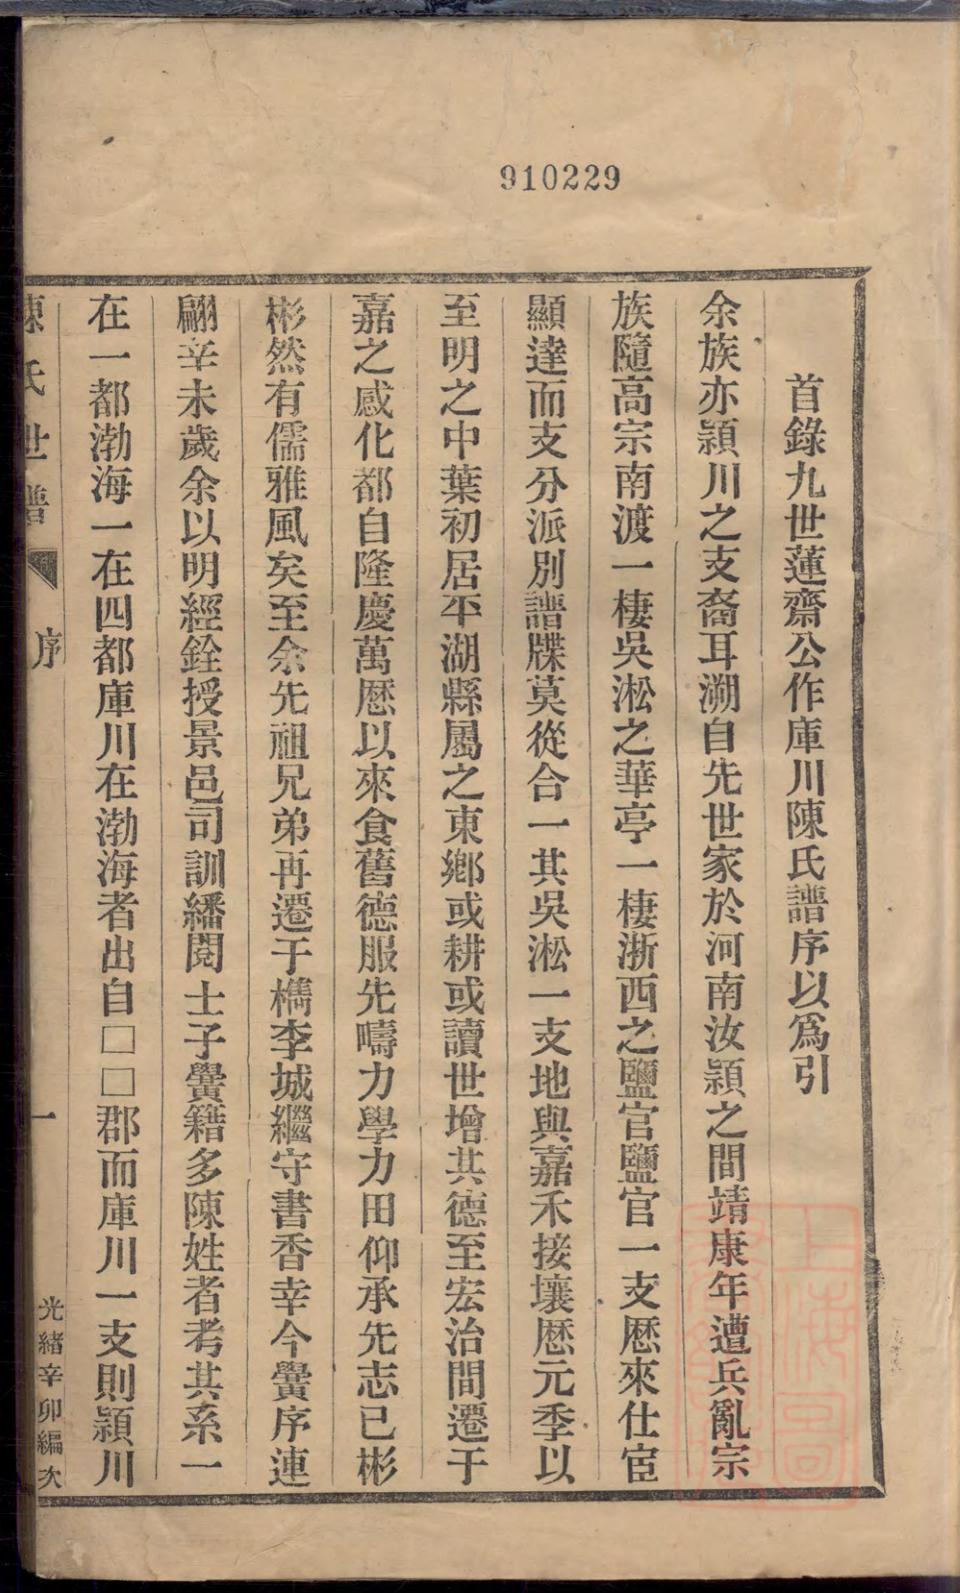 910229
首錄九世蓮齋公作庫川陳氏譜序以爲引
余族亦潁川之支裔耳溯自先世家於河南汝潁之間靖康年遭兵亂宗
族隨高宗南渡一棲吳淞之華亭一棲浙西之鹽官鹽官一支厯來仕宦
顯達而支分派別譜牒莫從合一其吳淞一支地與嘉禾接壤厯元季以
至明之中葉初居平湖縣屬之東鄉或耕或讀世增其德至宏治間遷于
嘉之感化都自隆慶萬厯以來食舊德服先疇力學力田仰承先志已彬
彬然有儒雅風矣至余先祖兄弟再遷于檇李城繼守書香幸今黌序連
翩辛未歲余以明經銓授景邑司訓繙閱士子黌籍多陳姓者考其系一
在一都渤海一在四都庫川在渤海者出自□□郡而庫川一支則潁川
陳氏世譜 序 一 光緒辛卯編次
上海圖